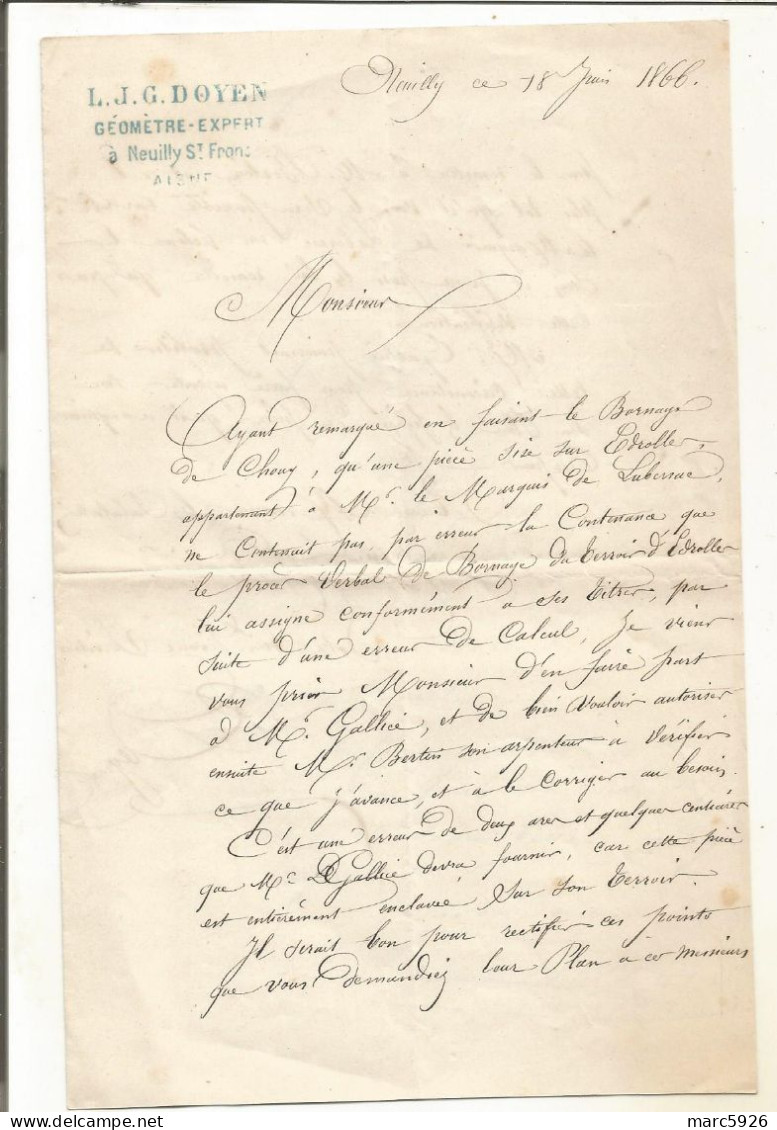 L. J. G. DOYEN
GÉOMÈTRE-EXPERT
à Neuilly St Front
AISNE
Neuilly ce 18 Juin 1866.
Monsieur
Ayant remarqué en faisant le Bornage
de Chouy, qu'une pièce sise sur Edrolles,
appartenant à Mr. le Marquis de Lubersac,
ne Contenait pas par erreur la Contenance que
le procès Verbal de Bornage du terroir d'Edrolles
lui assigne conformément a ses titres, par
suite d'une erreur de Calcul, Je viens
vous prier Monsieur d'en faire part
à Mr Gallice, et de bien Vouloir autoriser
ensuite Mr Bertin son arpenteur à Vérifier
ce que j'avance, et à le Corriger au besoin.
C'est une erreur de deux ares et quelques centiares
que Mr Gallice devra fournir, car cette pièce
est entièrement enclavée sur son terroir.
Il serait bon pour rectifier ces points
que vous demandiez leur Plan à ces messieurs
marc5926